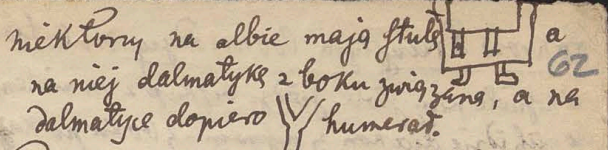 niektorzy na albie mają stułę a
na niej dalmatykę z boku związaną, a na
dalmatyce dopiero humerał.
62